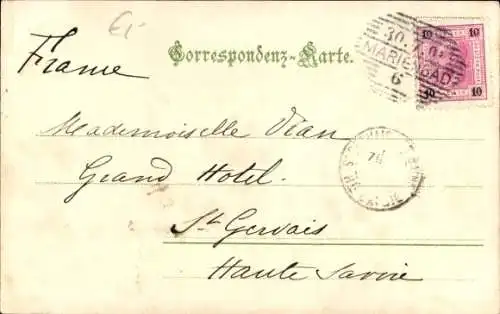 E.-
France
Correspondenz-Karte.
10 10
30
MARIENBAD
6
10 10
Mademoiselle Vian
Grand Hotel.
St Gervais
Haute Savoie